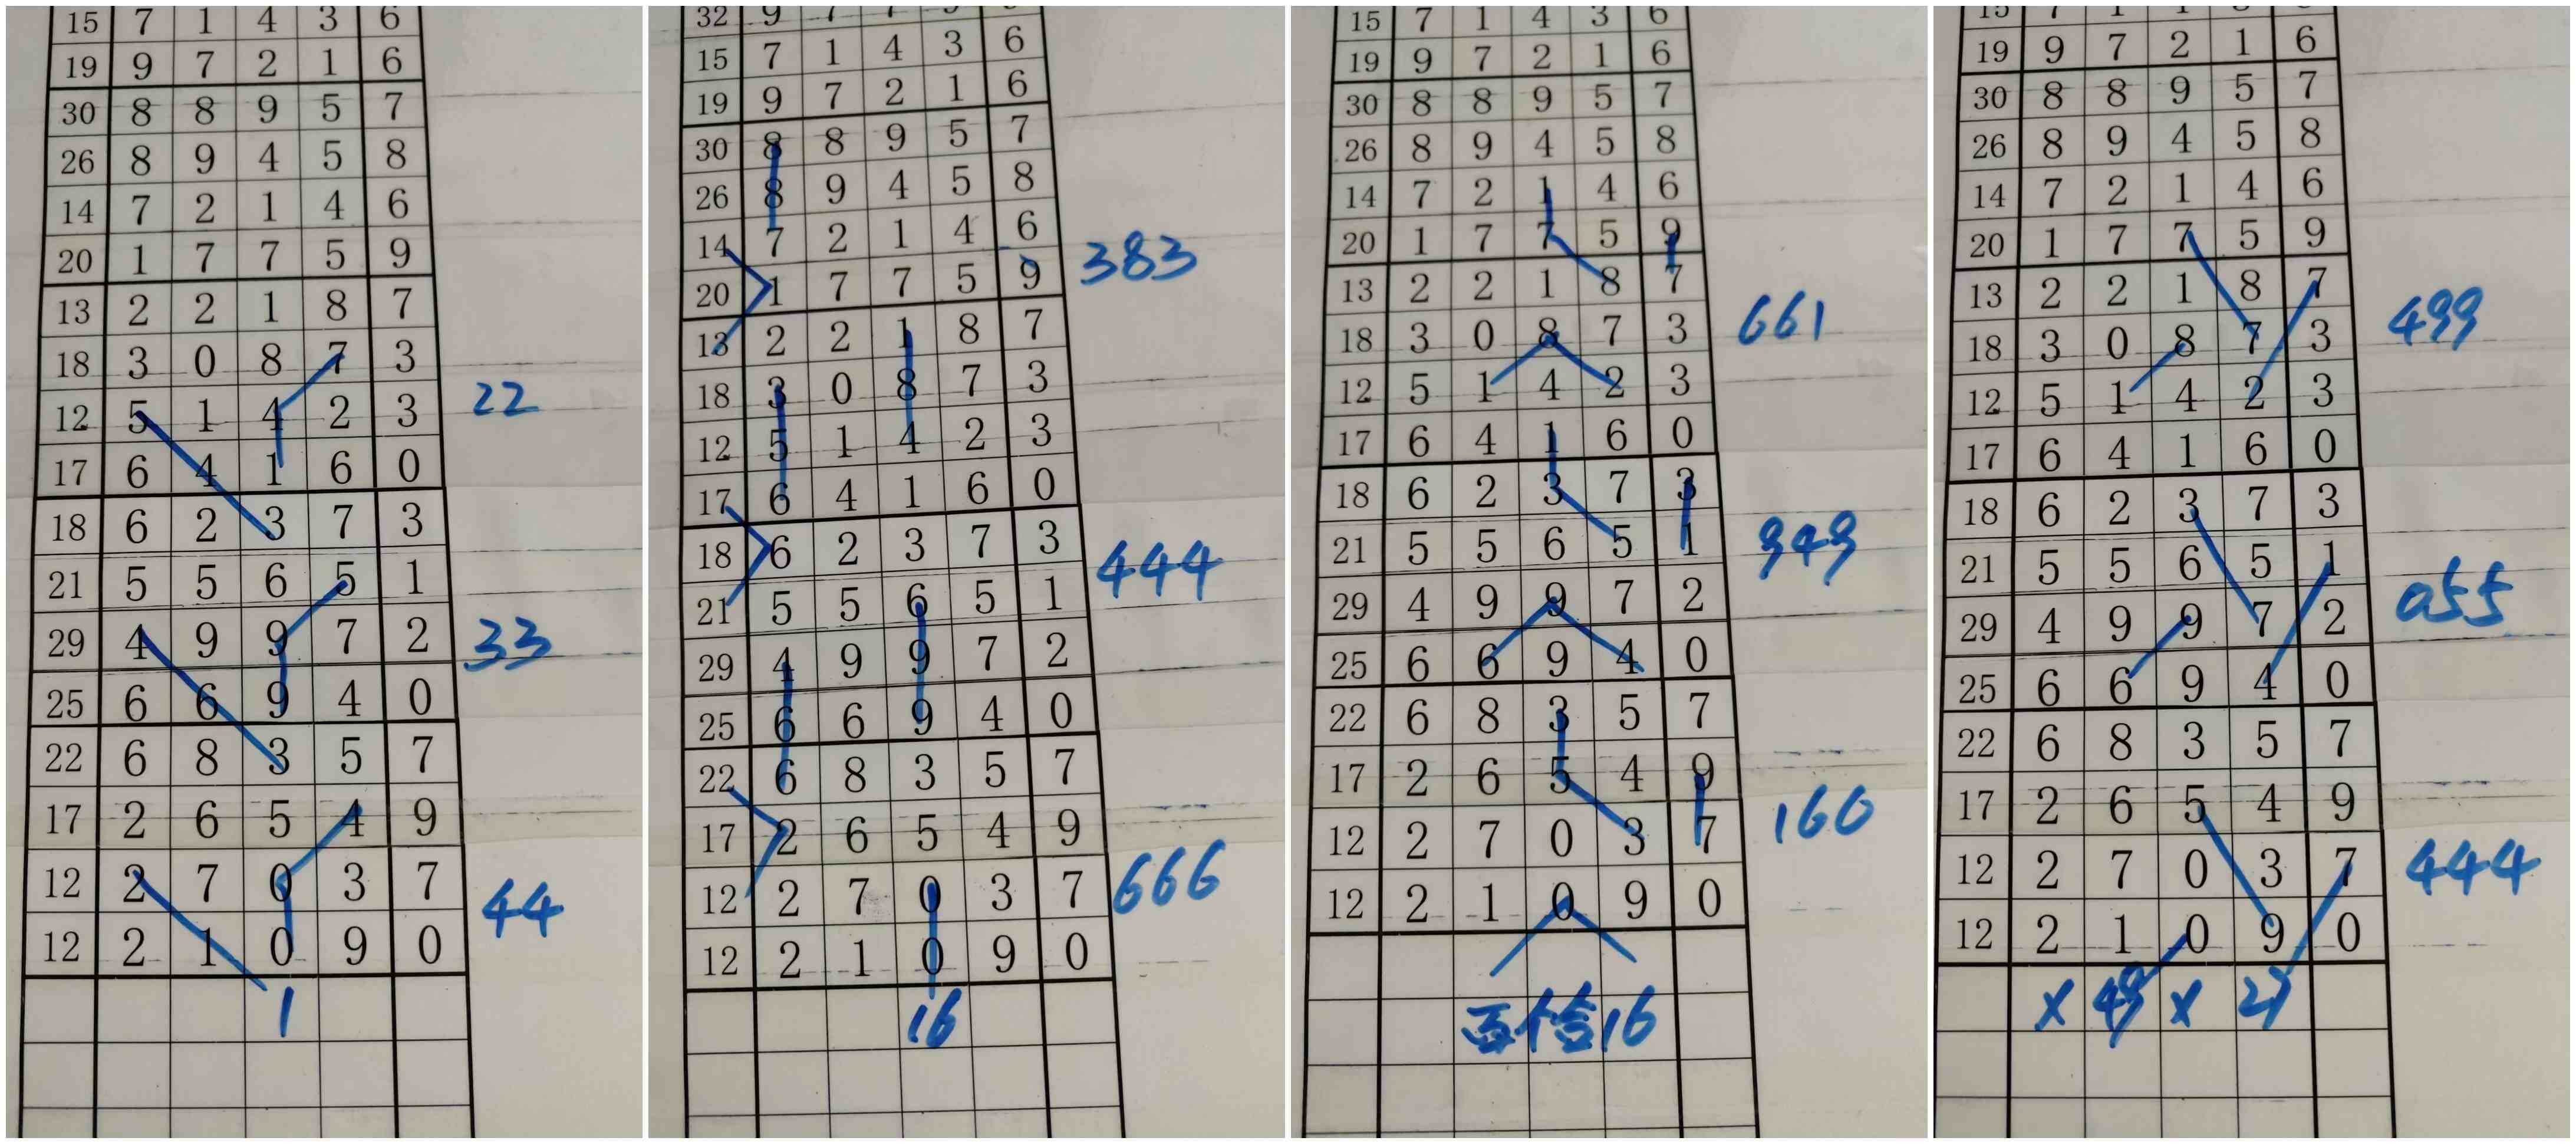 15 7 1 4 3 6
19 9 7 2 1 6
30 8 8 9 5 7
26 8 9 4 5 8
14 7 2 1 4 6
20 1 7 7 5 9
13 2 2 1 8 7
18 3 0 8 7 3
12 5 1 4 2 3 22
17 6 4 1 6 0
18 6 2 3 7 3
21 5 5 6 5 1
29 4 9 9 7 2 33
25 6 6 9 4 0
22 6 8 3 5 7
17 2 6 5 4 9
12 2 7 0 3 7 44
12 2 1 0 9 0
1
32 9
15 7 1 4 3 6
19 9 7 2 1 6
30 8 8 9 5 7
26 8 9 4 5 8
14 7 2 1 4 6 383
20 1 7 7 5 9
13 2 2 1 8 7
18 3 0 8 7 3
12 5 1 4 2 3
17 6 4 1 6 0
18 6 2 3 7 3 444
21 5 5 6 5 1
29 4 9 9 7 2
25 6 6 9 4 0
22 6 8 3 5 7
17 2 6 5 4 9
12 2 7 0 3 7 666
12 2 1 0 9 0
16
15 7 1 4 3 6
19 9 7 2 1 6
30 8 8 9 5 7
26 8 9 4 5 8
14 7 2 1 4 6
20 1 7 7 5 9
13 2 2 1 8 7
18 3 0 8 7 3 661
12 5 1 4 2 3
17 6 4 1 6 0
18 6 2 3 7 3
21 5 5 6 5 1 949
29 4 9 9 7 2
25 6 6 9 4 0
22 6 8 3 5 7
17 2 6 5 4 9
12 2 7 0 3 7 160
12 2 1 0 9 0
百拾16
15 7 1
19 9 7 2 1 6
30 8 8 9 5 7
26 8 9 4 5 8
14 7 2 1 4 6
20 1 7 7 5 9
13 2 2 1 8 7
18 3 0 8 7 3 499
12 5 1 4 2 3
17 6 4 1 6 0
18 6 2 3 7 3
21 5 5 6 5 1
29 4 9 9 7 2 055
25 6 6 9 4 0
22 6 8 3 5 7
17 2 6 5 4 9
12 2 7 0 3 7 444
12 2 1 0 9 0
X 49 X 27